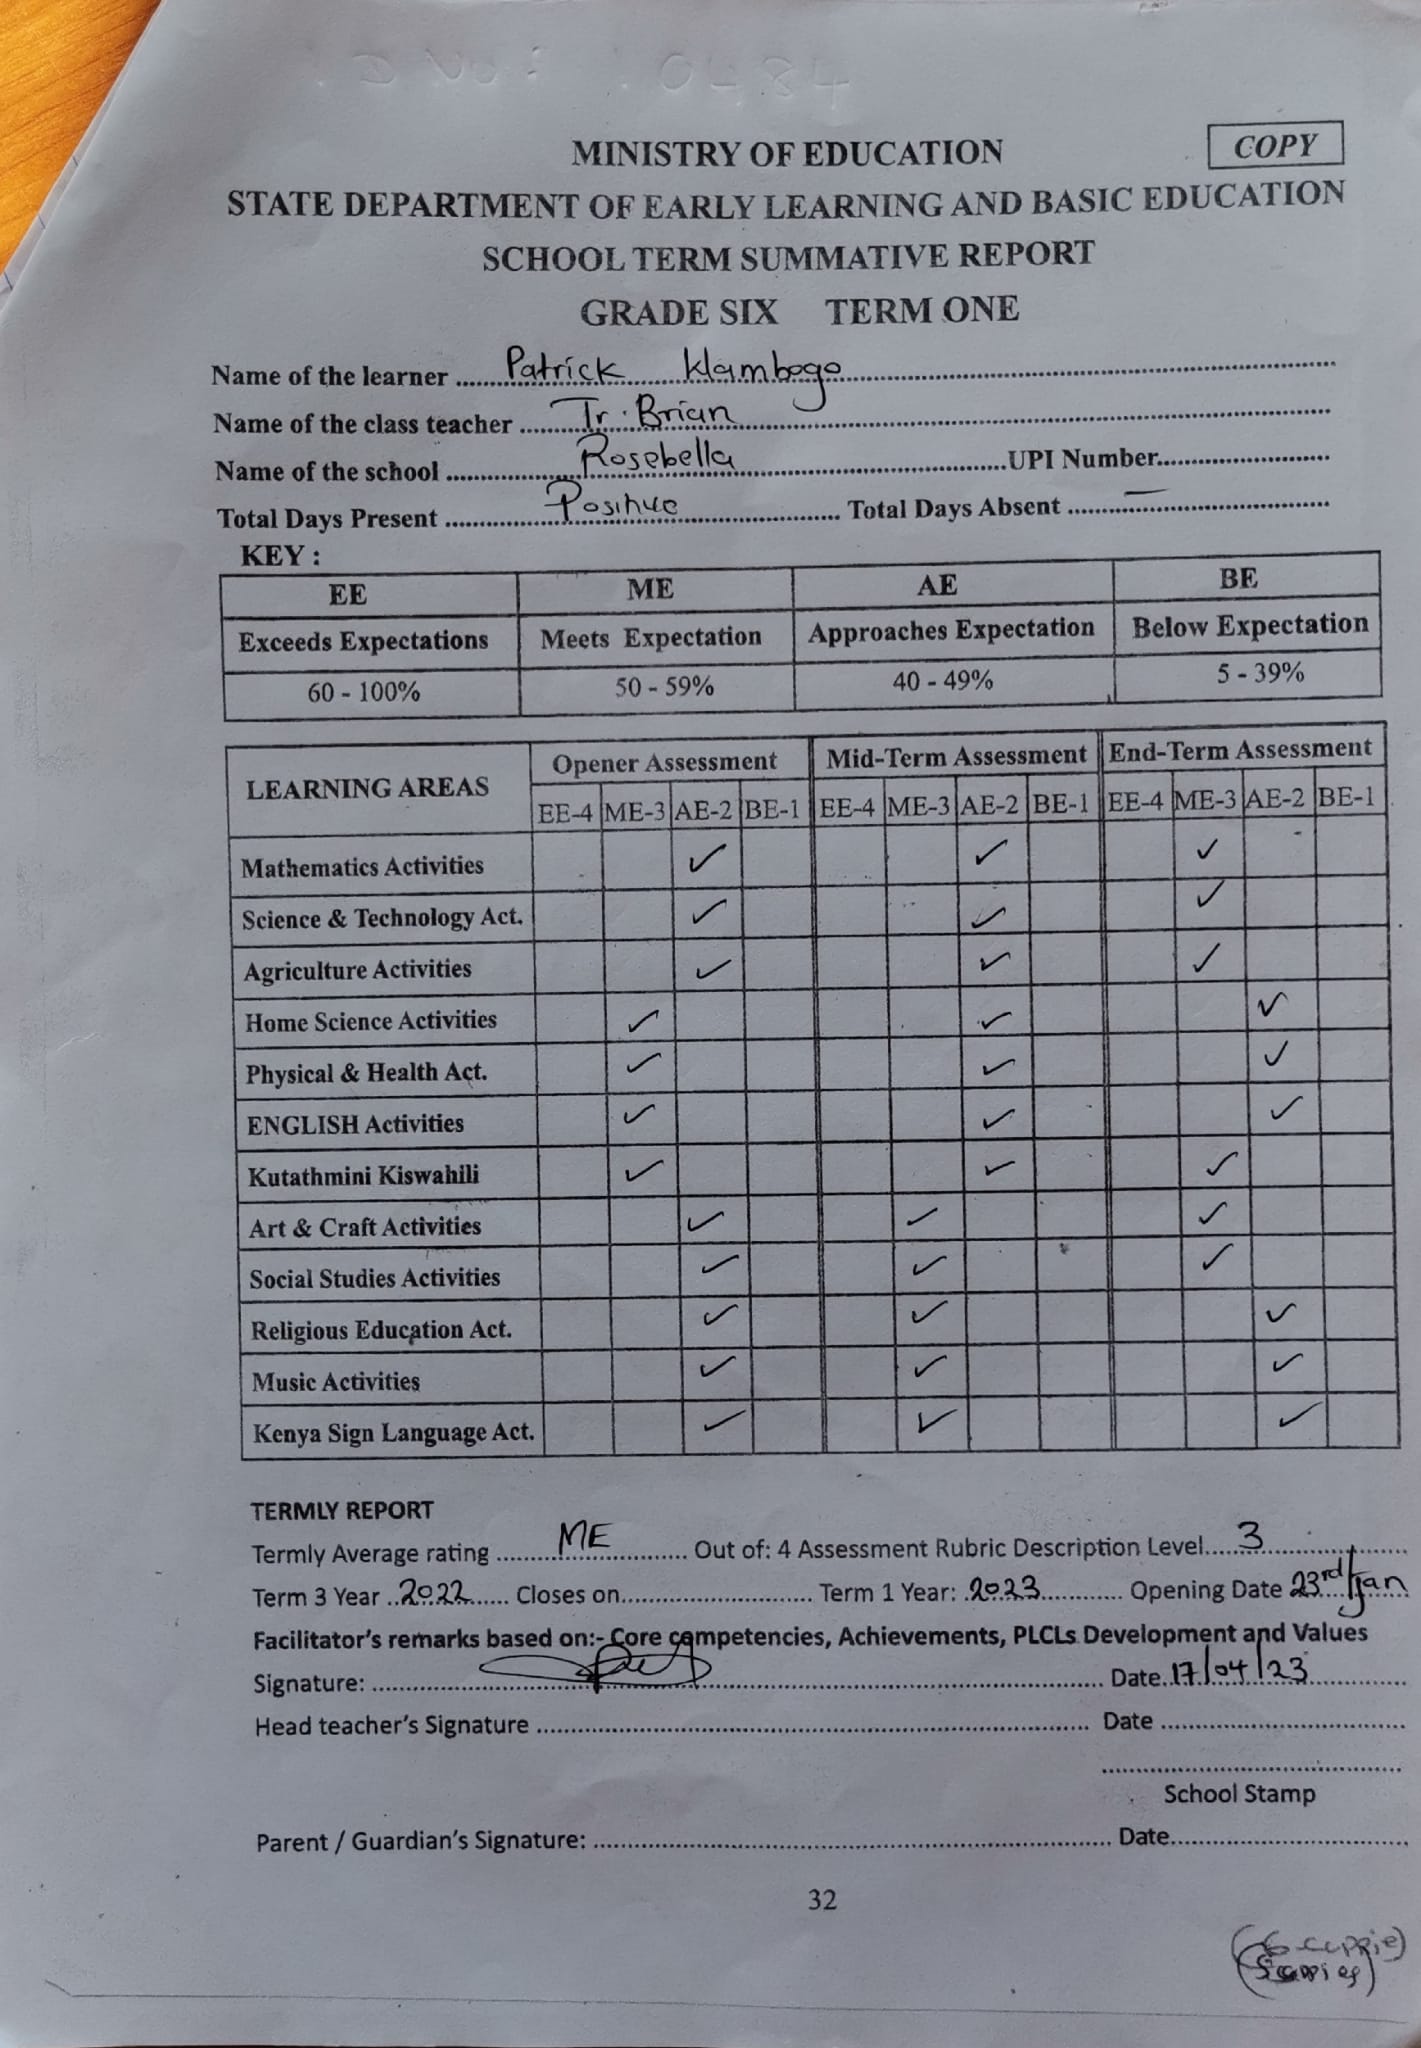 COPY
MINISTRY OF EDUCATION
STATE DEPARTMENT OF EARLY LEARNING AND BASIC EDUCATION
SCHOOL TERM SUMMATIVE REPORT
GRADE SIX TERM ONE
Name of the learner Patrick Klambogo
Name of the class teacher Tr. Brian
Name of the school Rosebella UPI Number
Total Days Present Positive Total Days Absent —
KEY :
EE ME AE BE
Exceeds Expectations Meets Expectation Approaches Expectation Below Expectation
60 - 100% 50 - 59% 40 - 49% 5 - 39%
LEARNING AREAS Opener Assessment Mid-Term Assessment End-Term Assessment
EE-4 ME-3 AE-2 BE-1 EE-4 ME-3 AE-2 BE-1 EE-4 ME-3 AE-2 BE-1
Mathematics Activities ✓ ✓ ✓
Science & Technology Act. ✓ ✓ ✓
Agriculture Activities ✓ ✓ ✓
Home Science Activities ✓ ✓ ✓
Physical & Health Act. ✓ ✓ ✓
ENGLISH Activities ✓ ✓ ✓
Kutathmini Kiswahili ✓ ✓ ✓
Art & Craft Activities ✓ ✓ ✓
Social Studies Activities ✓ ✓ ✓
Religious Education Act. ✓ ✓ ✓
Music Activities ✓ ✓ ✓
Kenya Sign Language Act. ✓ ✓ ✓
TERMLY REPORT
Termly Average rating ME Out of: 4 Assessment Rubric Description Level 3
Term 3 Year 2022 Closes on Term 1 Year: 2023 Opening Date 23rd/Jan
Facilitator's remarks based on:- Core competencies, Achievements, PLCLs Development and Values
Signature: Date 17/04/23
Head teacher's Signature Date
School Stamp
Parent / Guardian's Signature: Date
32